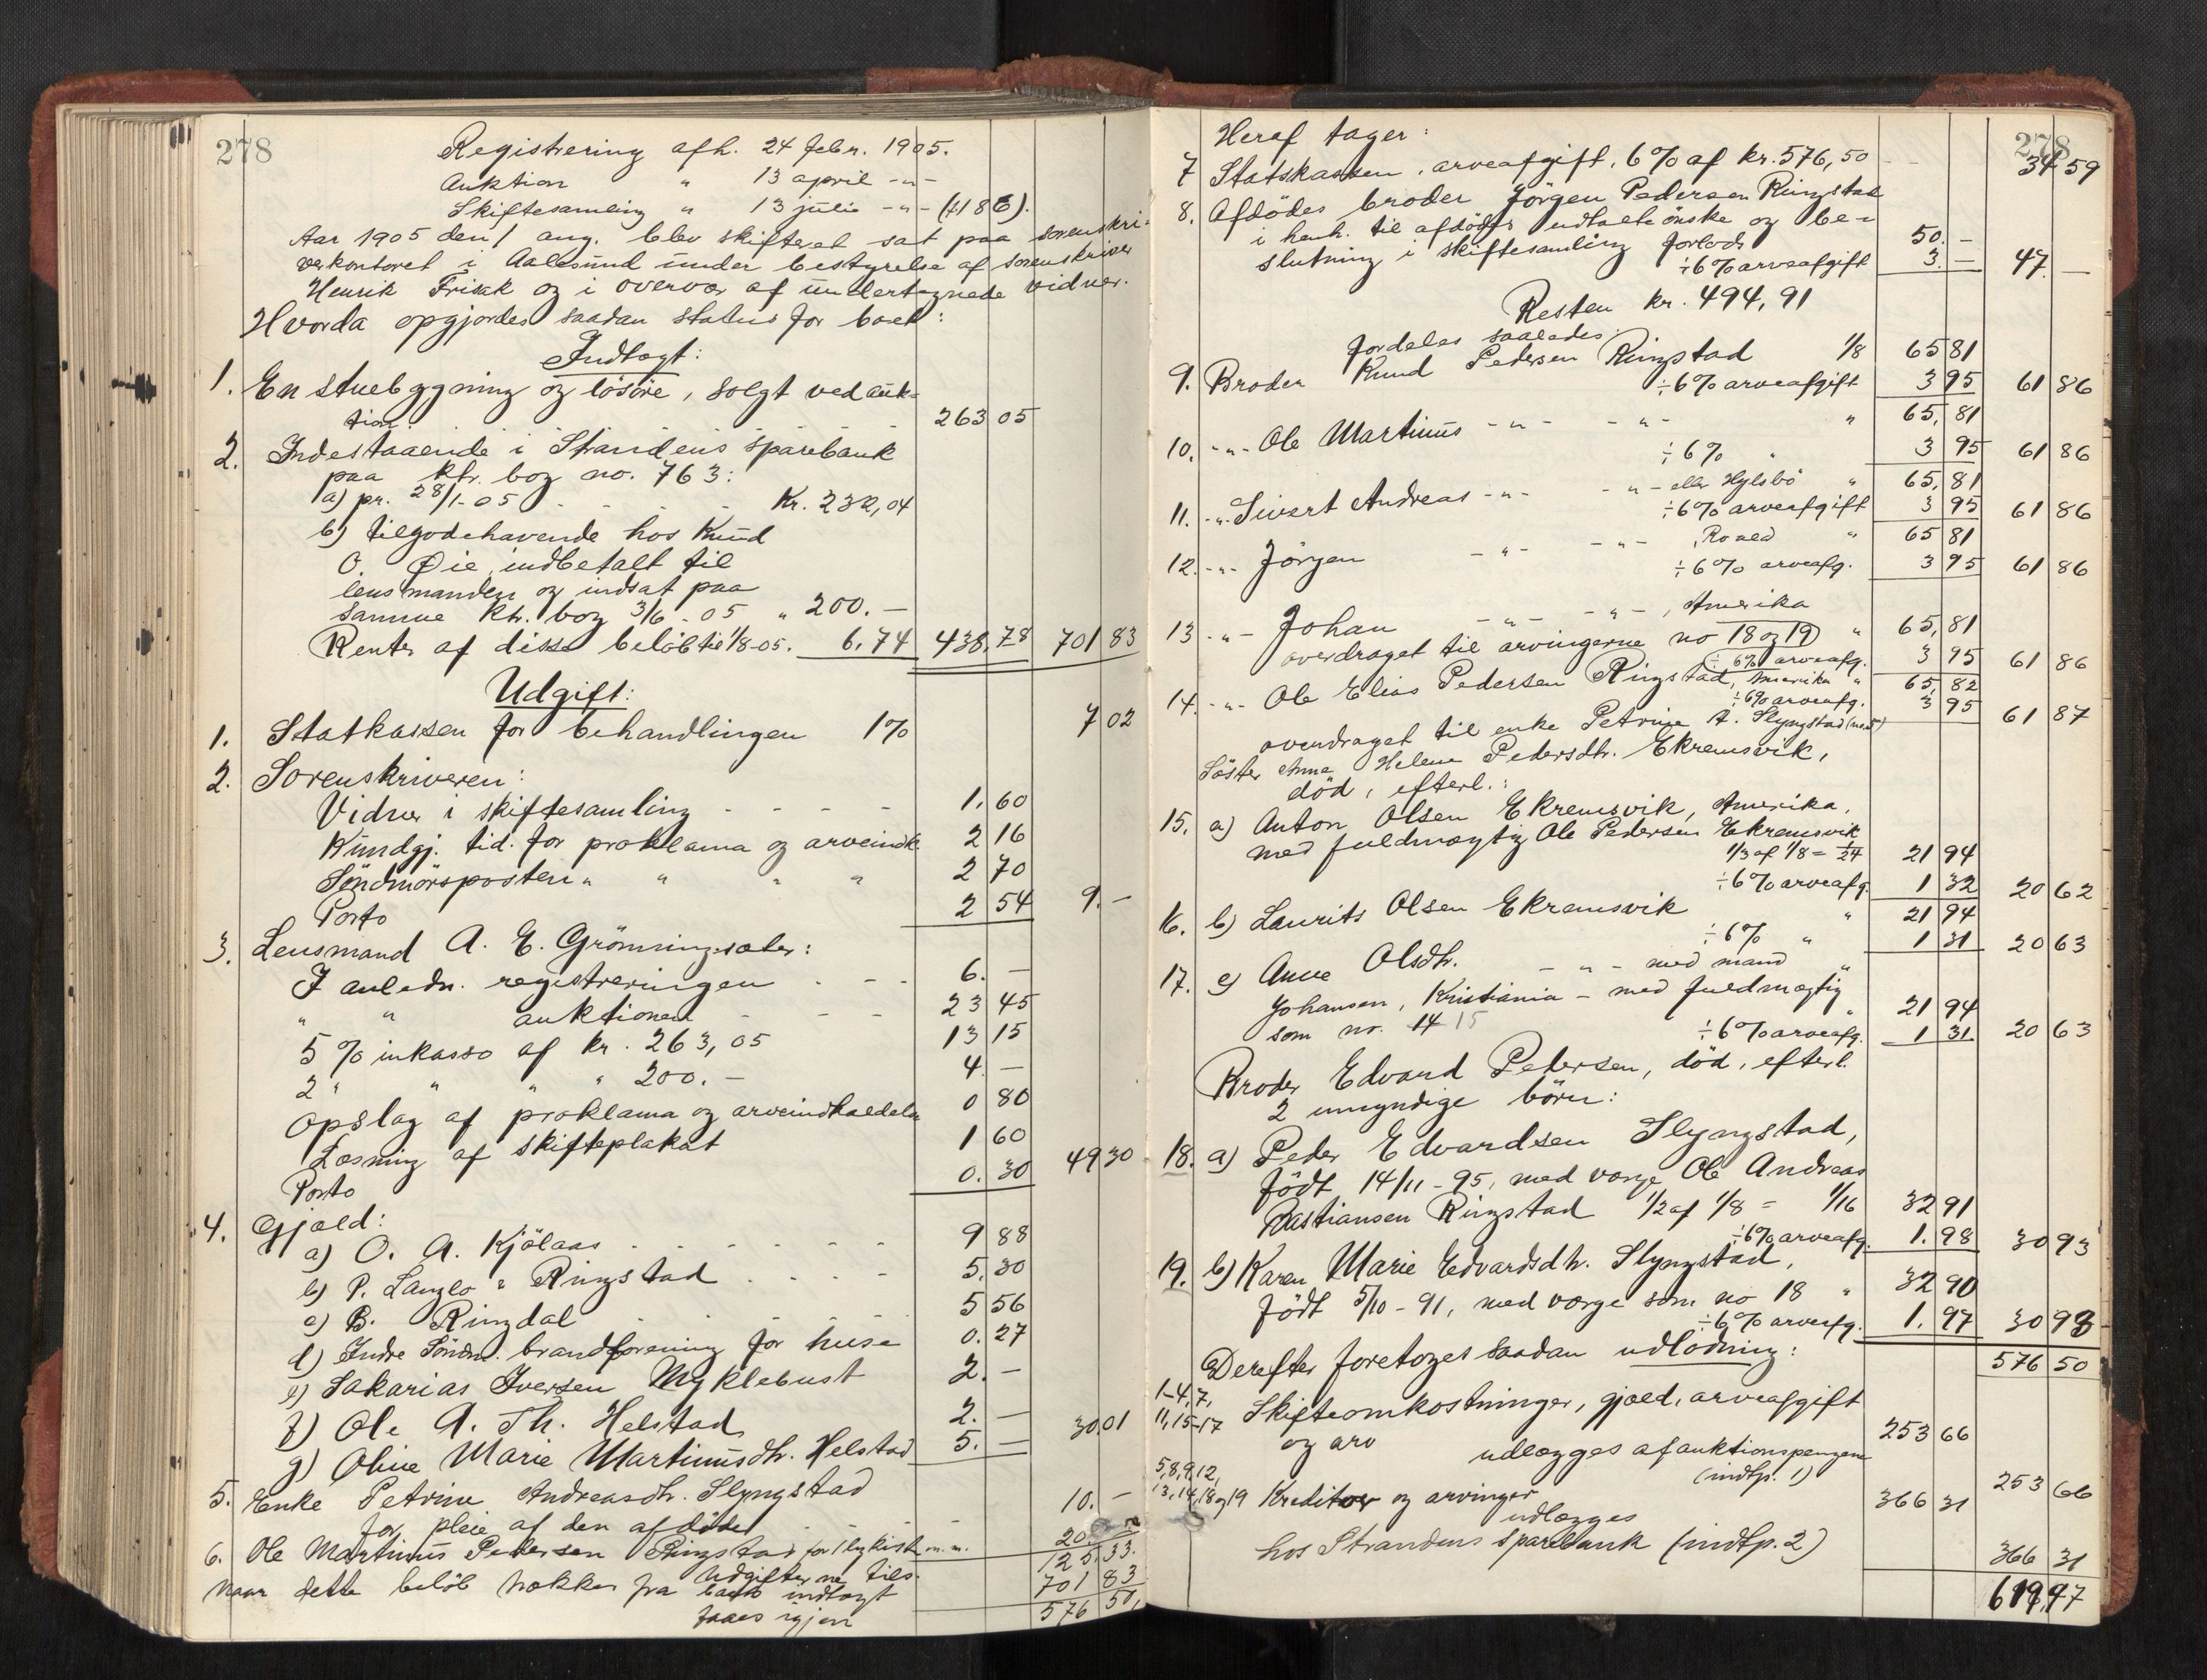 278
Registrering afh. 24 febr. 1905.
Auktion " 13 april -"-
Skiftesamling " 13 julie -"- (f. 186).
Aar 1905 den 1 aug. blev skifteret sat paa sorenskri-
verkontoret i Aalesund under bestyrelse af sorenskriver
Henrik Frisak og i overvær af undertegnede vidner.
Hvorda opgjordes saadan status for boet:
Indtægt:
1. En stuebygning og løsøre, solgt ved auk-
tion 263 05
2. Indestaaende i Strandens sparebank
paa ktr. bog no. 763:
a) pr. 28/1-05 . . . . Kr. 232,04
b) tilgodehavende hos Knud
O. Øie, indbetalt til
lensmanden og indsat paa
samme ktr. bog 3/6 - 05 " 200. —
Renter af disse beløb til 1/8-05. 6,74 438,78 701 83
Udgift:
1. Statkassen for behandlingen 1% 7 02
2. Sorenskriveren:
Vidner i skiftesamling - - - - 1. 60
Kundgj. tid. for proklama og arveindk. 2 16
Söndmörsposten " " " " 2 70
Porto 2 54 9. -
3. Lensmand A. E. Grönningsæter:
I anledn. registreringen - - - 6. —
" " auktionen - - - 23 45
5 % inkasso af kr. 263,05 13 15
2 " " " " 200. — 4. —
Opslag af proklama og arveindkaldelse 0 80
Læsning af skifteplakat 1 60
Porto 0. 30 49 30
4. Gjæld:
a) O. A. Kjölaas - - - - - - 9 88
b) P. Langlo " Ringstad - - - - 5. 30
c) B. Ringdal - - - - 5 56
d) Indre Söndm. brandforening for huse 0. 27
e) Sakarias Iversen Myklebust 2. —
f) Ole A. Th. Helstad 2. —
g) Oline Marie Martinusdtr. Helstad 5. — 30 01
5. Enke Petrine Andreasdtr. Slyngstad
for pleie af den afdøde - - - 10. -
6. Ole Martinus Pedersen Ringstad for ligkiste m. m. 20.
Udgifterne tils. 125. 33.
Naar dette beløb trækkes fra boets indtægt 701 83
faaes igjen 576 50,
278
Heraf tager:
7 Statskassen, arveafgift, 6% af kr. 576,50 34 59
8. Afdödes broder Jörgen Pedersen Ringstad
i henh. til afdödes udtalte önske og be-
slutning i skiftesamling forlods 50. -
÷ 6% arveafgift 3. — 47. —
Resten kr. 494,91
fordeles saaledes:
9. Broder Knud Pedersen Ringstad 1/8 65 81
÷ 6% arveafgift 3 95 61 86
10. -"- Ole Martinus -"- -"- " 65, 81
÷ 6% " 3 95 61 86
11. -"- Sivert Andreas -"- -"- eller Hylsbö " 65, 81
÷ 6% arveafgift 3 95 61 86
12. -"- Jörgen -"- -"- , Roald " 65 81
÷ 6% arveafg. 3 95 61 86
13 -"- Johan -"- -"- , Amerika
overdraget til arvingerne no 18 og 19 " 65, 81
÷ 6% arveafg. 3 95 61 86
14. -"- Ole Elias Pedersen Ringstad, Amerika " 65, 82
÷ 6% arveafg. 3 95 61 87
overdraget til enke Petrine A. Slyngstad (no 5)
Söster Anne Helene Pedersdtr. Ekremsvik,
död, efterl.:
15. a) Anton Olsen Ekremsvik, Amerika,
med fuldmægtig Ole Pedersen Ekremsvik
1/3 af 1/8 = 1/24 21 94
÷ 6% arveafg. 1 32 20 62
16. b) Laurits Olsen Ekremsvik " 21 94
÷ 6% " 1 31 20 63
17. c) Anne Olsdtr. -"- med mand "
Johansen, Kristiania - med fuldmægtig
som no. 14 15 " 21 94
÷ 6% arveafg. 1 31. 20 63
Broder Edvard Pedersen, död, efterl.
2 umyndige börn:
18. a) Peder Edvardsen Slyngstad,
födt 14/11 - 95, med værge Ole Andreas
Bastiansen Ringstad 1/2 af 1/8 = 1/16 32 91
÷ 6% arveafg. 1. 98 30 93
19. b) Karen Marie Edvardsdtr. Slyngstad,
födt 5/10 - 91, med værge som no 18 " 32 90
÷ 6% arveafg. 1. 97 30 93
Derefter foretoges saadan udlodning: 576 50
1-4, 7,
11, 15-17 Skifteomkostninger, gjæld, arveafgift
og arv 253 66
udlægges af auktionspengene
(indtp. 1) 253 66
5,8,9,12,
13,14,18 og 19 Kreditor og arvinger 366 31
udlægges
hos Strandens sparebank (indtp. 2) 366 31
619,97